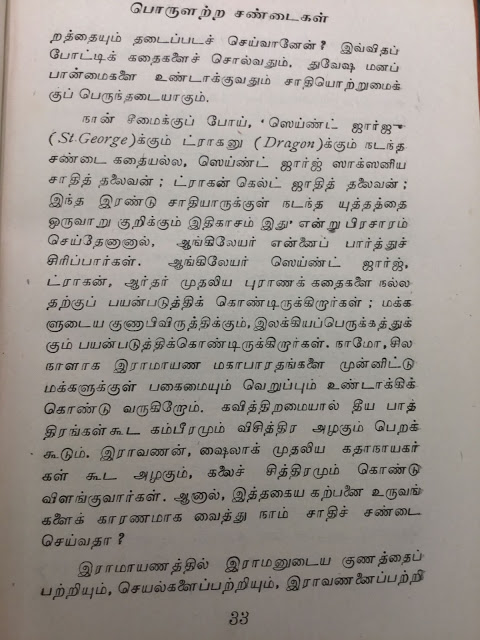 பொருளற்ற சண்டைகள்
றத்தையும் தடைப்படச் செய்வானேன்? இவ்விதப்
போட்டிக் கதைகளைச் சொல்வதும், துவேஷ மனப்
பான்மைகளை உண்டாக்குவதும் சாதியொற்றுமைக்
குப் பெருந்தடையாகும்.
நான் சீமைக்குப் போய், 'ஸெய்ண்ட் ஜார்ஜு
(St-George)க்கும் ட்ராகனு (Dragon)க்கும் நடந்த
சண்டை கதையல்ல, ஸெய்ண்ட் ஜார்ஜ் ஸாக்ஸனிய
சாதித் தலைவன்; ட்ராகன் கெல்ட் ஜாதித் தலைவன்;
இந்த இரண்டு சாதியாருக்குள் நடந்த யுத்தத்தை
ஒருவாறு குறிக்கும் இதிகாசம் இது' என்று பிரசாரம்
செய்தேனானால், ஆங்கிலேயர் என்னைப் பார்த்துச்
சிரிப்பார்கள். ஆங்கிலேயர் ஸெய்ண்ட் ஜார்ஜ்,
ட்ராகன், ஆர்தர் முதலிய புராணக் கதைகளை நல்ல
தற்குப் பயன்படுத்திக் கொண்டிருக்கிறார்கள்; மக்க
ளுடைய குணாபிவிருத்திக்கும், இலக்கியப்பெருக்கத்துக்
கும் பயன்படுத்திக்கொண்டிருக்கிறார்கள். நாமோ, சில
நாளாக இராமாயண மகாபாரதங்களை முன்னிட்டு
மக்களுக்குள் பகைமையும் வெறுப்பும் உண்டாக்கிக்
கொண்டு வருகிறோம். கவித்திறமையால் தீய பாத்
திரங்கள்கூட கம்பீரமும் விசித்திர அழகும் பெறக்
கூடும். இராவணன், ஷைலாக் முதலிய கதாநாயகர்
கள் கூட அழகும், கலைச் சித்திரமும் கொண்டு
விளங்குவார்கள். ஆனால், இத்தகைய கற்பனை உருவங்
களைக் காரணமாக வைத்து நாம் சாதிச் சண்டை
செய்வதா?
இராமாயணத்தில் இராமனுடைய குணத்தைப்
பற்றியும், செயல்களைப்பற்றியும், இராவணனைப்பற்றி
33